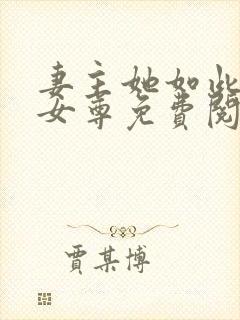 妻主她如此
女尊免费阅
贾某博